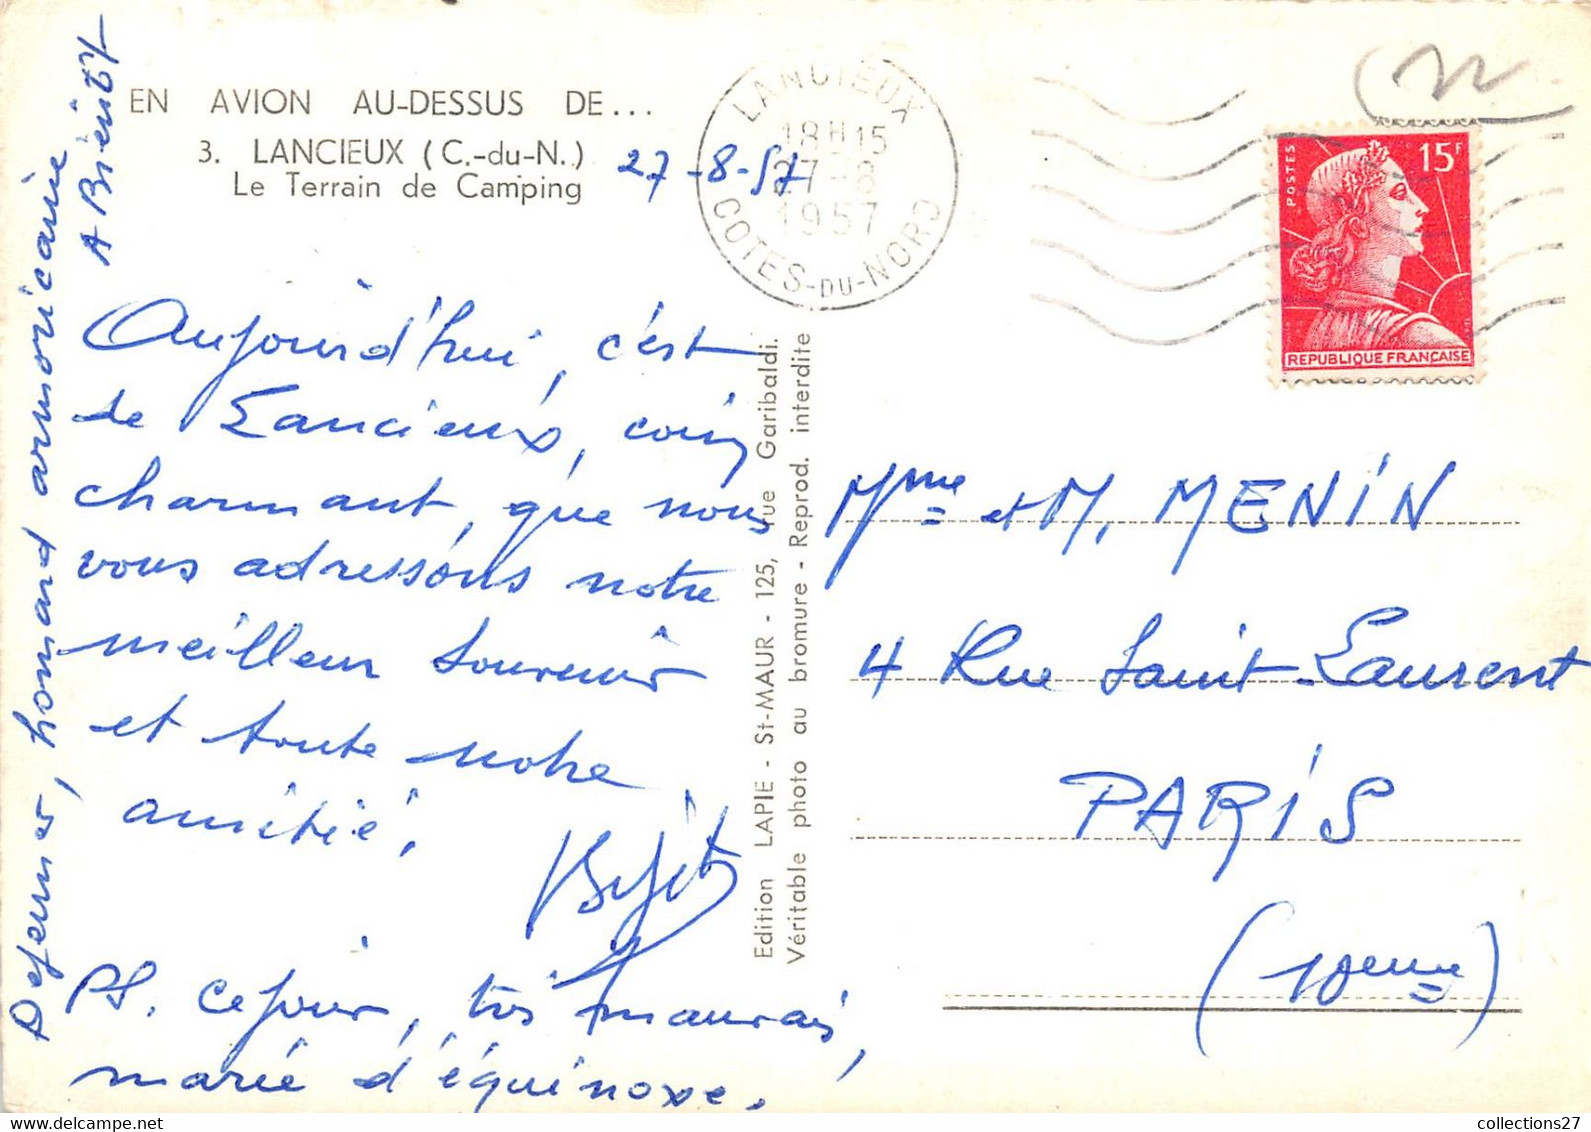 EN AVION AU-DESSUS DE...
3. LANCIEUX (C.-du-N.)
Le Terrain de Camping
27-8-57
LANCIEUX
18H15
27-8
1957
COTES-DU-NORD
POSTES
15F
REPUBLIQUE FRANÇAISE
Aujourd'hui, c'est
de Lancieux, coin
charmant, que nous
vous adressons notre
meilleur souvenir
et toute notre
amitié.
PS. Ce jour, très mauvais,
marée d'équinoxe.
Déjeuner, homard armoricaine
A Bientôt
Edition LAPIE - St-MAUR - 125, rue Garibaldi.
Véritable photo au bromure - Reprod. interdite
Mme et M. MENIN
4 Rue Saint-Laurent
PARIS
(10eme)
collections27